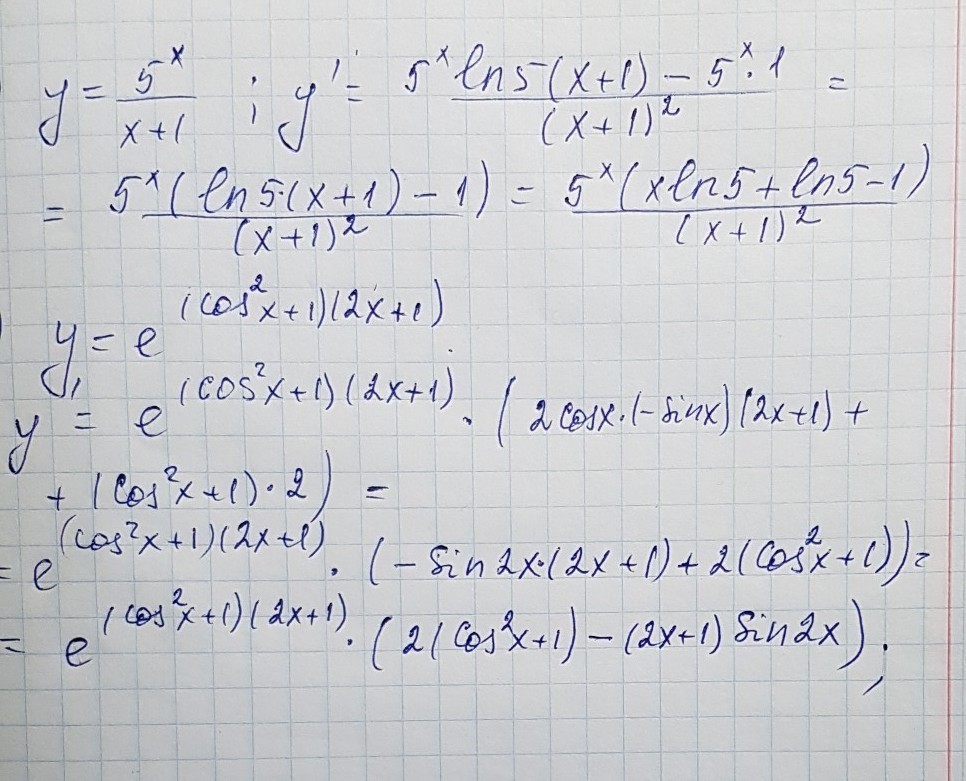 y = 5^x / (x+1) ; y' = (5^x ln5 (x+1) − 5^x · 1) / (x+1)^2 =
= 5^x (ln5·(x+1) − 1) / (x+1)^2 = 5^x (x ln5 + ln5 − 1) / (x+1)^2
y = e^((cos^2 x + 1)(2x+1))
y' = e^((cos^2 x + 1)(2x+1)) · (2cosx·(−sinx)(2x+1) +
+ (cos^2 x + 1)·2) =
= e^((cos^2 x + 1)(2x+1)) · (− sin2x·(2x+1) + 2(cos^2 x + 1)) =
= e^((cos^2 x + 1)(2x+1)) · (2(cos^2 x + 1) − (2x+1) sin2x) ;